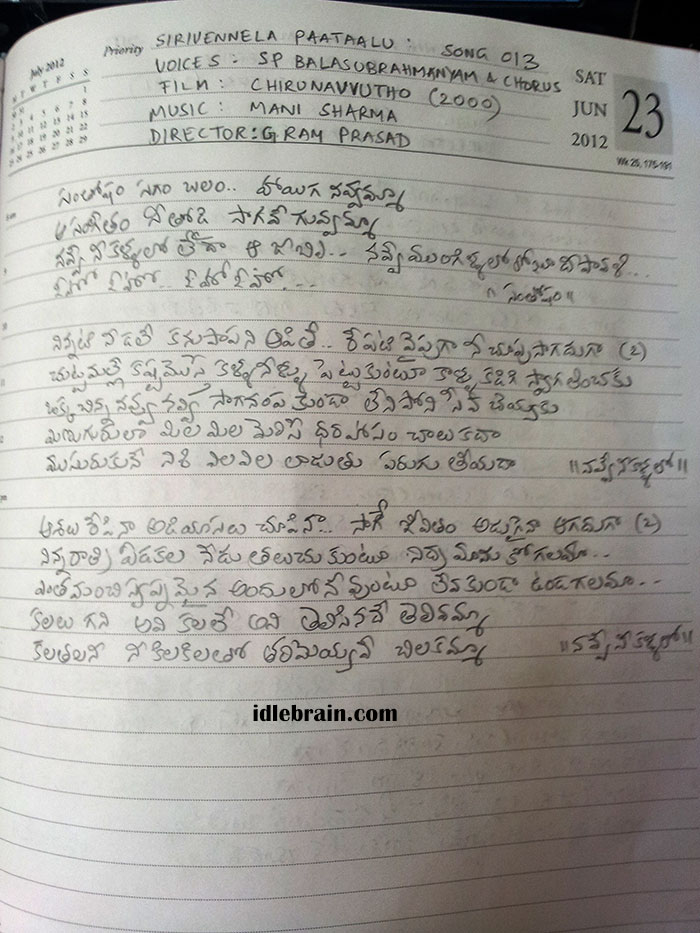 July 2012
Priority
SIRIVENNELA PAATAALU: SONG 013
VOICES: SP BALASUBRAHMANYAM & CHORUS
FILM: CHIRUNAVVUTHO (2000)
MUSIC: MANI SHARMA
DIRECTOR: G RAM PRASAD
SAT
JUN 23
2012
Wk 25, 175-191
సంతోషం సగం బలం.. హాయిగ నవ్వమ్మా
ఆ సంగీతం నీతోడై సాగవె గువ్వమ్మా
నవ్వే నీ కళ్ళలో లేదా ఆ జాబిలి.. నవ్వే ముంగిళ్ళలో రోజూ దీపావళి...
ఓహో ఓహో.. ఓహో ఓహో...
"సంతోషం"
నిన్నటి నీడలే కనుపాపని ఆపితే.. రేపటి వైపుగా నీ చూపు సాగదుగా (2)
చుట్టమల్లే కష్టమొస్తే కళ్ళనీళ్ళు పెట్టుకుంటూ కాళ్ళు కడిగి స్వాగతించకు
ఒక్క చిన్న నవ్వు నవ్వి సాగనంప కుండా లేనిపోని సేవ చేయ్యకు
మిణుగురులా మిల మిల మెరిసే దరహాసం చాలు కదా
ముసురుకునే నిశి విలవిల లాడుతు పరుగు తీయదా ॥నవ్వే నీ కళ్ళలో॥
ఆశలు రేపినా అడియాసలు చూపినా.. సాగే జీవితం అడుగైనా ఆగదుగా (2)
నిన్న రాత్రి పీడకల నేడు తలుచుకుంటూ నిద్ర మానుకోగలమా..
ఎంత మంచి స్వప్నమైన అందులోనే వుంటూ లేవకుండా ఉండగలమా..
కలలు గని అవి కలలే అని తెలిసినదే తెలివమ్మా
కలతలని నీ కిలకిలతో తరిమెయ్యవే చిలకమ్మా ॥నవ్వే నీ కళ్ళలో॥
idlebrain.com